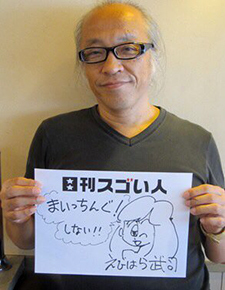 日刊スゴい人
まいっちんぐ!
しない!!
えびはら武司